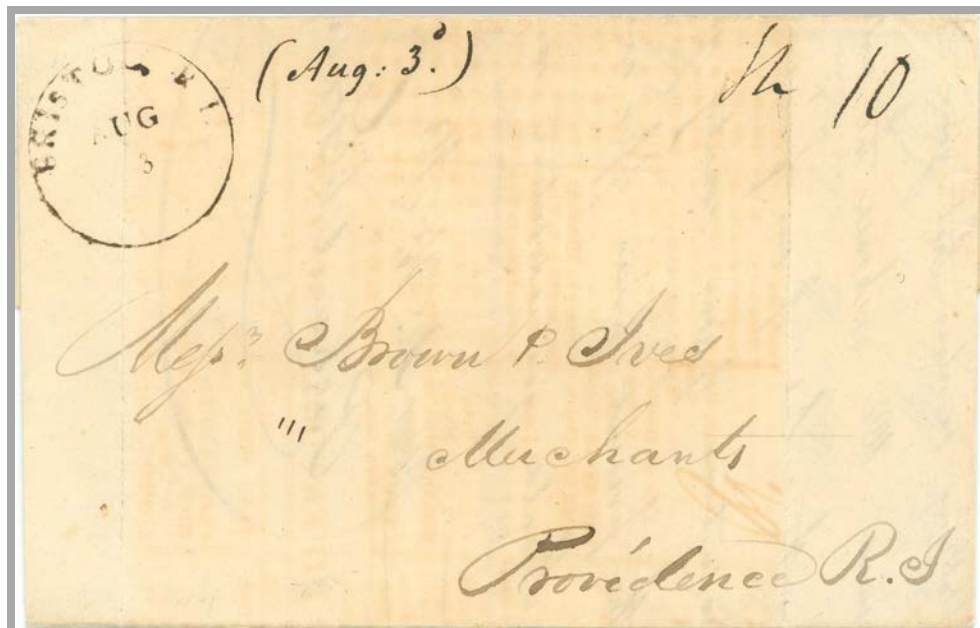 BRISTOL R.I.
AUG
3
(Aug: 3.ᵈ)
Sh 10
Messʳˢ Brown & Ives
"'
Merchants
Providence R.I